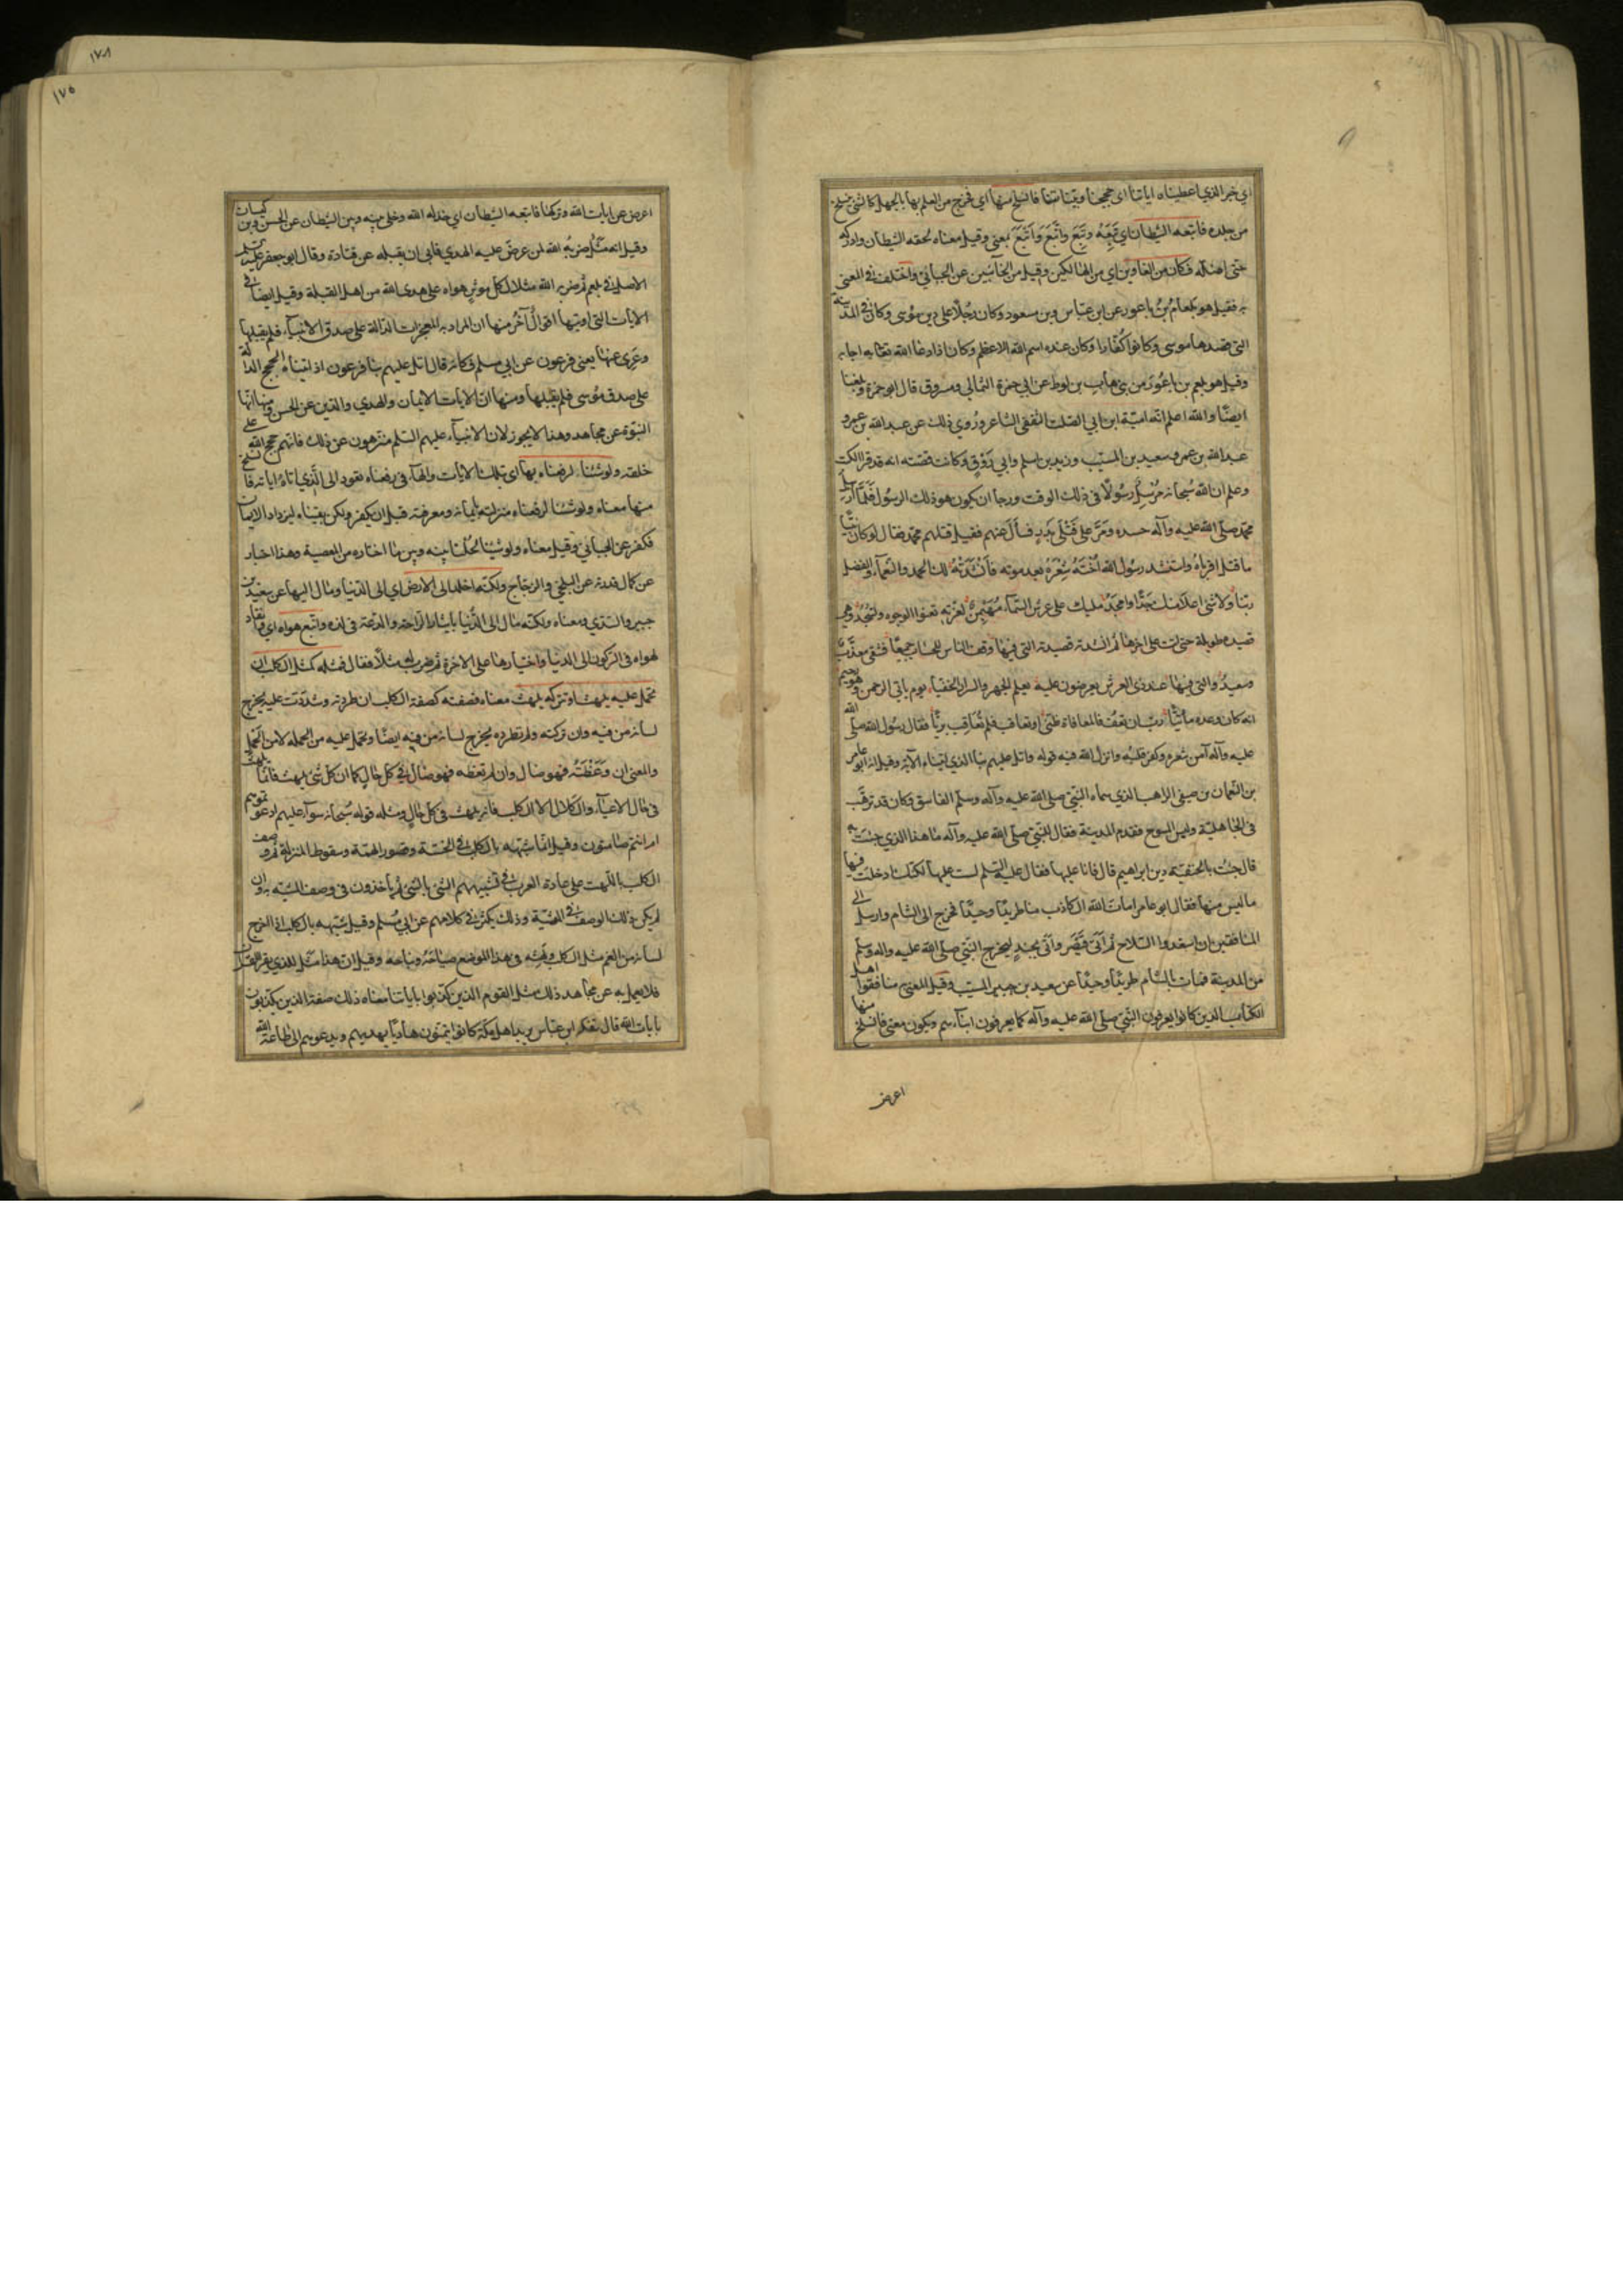 اي خبر الذي اعطيناه اياتنا اى حججنا وبيّناتنا فانسلخ منها اي فخرج من العلم بها بالجهل كالشئ ينسلخ
من جلده فاتبعه الشيطان اي تبعه وتَبِعَ واتَّبَعَ وَاتْبَعَ بمعنى وقيل معناه لحقه الشيطان وادركه
حتى اضلّه فكان من الغاوين اي من الهالكين وقيل من الخائبين عن الجبائي واختلف في المعنى
به فقيل هو بلعام بنُ باعور عن ابن عباس وبن مسعود وكان رجُلًا على دين موسى وكان في المدينة
التى قصدها موسى وكانوا كُفّارا وكان عنده اسم الله الاعظم وكان اذا دعا الله تعالى به اجابه
وقيل هو بلعم بن باعُورَ من بنى هاب بن لوط عن ابي حمزة الثمالي ومسروق قال ابو حمزة وبلغنا
ايضًا والله اعلم انه اميّة ابن ابي الصلت الثقفى الشاعر ورُوي ذلك عن عبد الله بن عمرو
عبد الله بن عمر وسعيد بن المسيّب وزيد بن اسلم وابي رَوْقٍ وكانت قصّته انه قد قرا الكتب
وعلم ان الله سُبحانه مُرْسِل رسُولًا في ذلك الوقت ورجا ان يكون هو ذلك الرسُول فَلَمَّا اُرسِل
محمّد صلّى الله عليه وآله حسده ومَرَّ على قَتْلَى بَدرٍ فسأل عنهم فقيل قتلهم محمّد فقال لو كان نبيًّا
ما قتل اقرباهُ واستنشد رسُول الله اُخْتَهُ شِعْرَهُ بعد موته فَأَنْشَدَتْهُ لك الحمد والنّعمآء والفضل
ربّنا ولا شئ اعلا منك جَدًّا وامجَدُ مليك على عرش السّمآء مُهَيْمِنٌ لعزّته تعنوا الوجوه وتسجُدُ وهى
قصيده طويلة حتى اتت على اخرها ثم انشدته قصيدته التى فيها وقف الناس للحساب جميعًا فشقى معذّب
وسعيدٌ والتى فيها عند ذى العرش يعرضون عليه يعلم الجهر والسرار الخفيا يوم ياتي الرحمن وهو رحيم
انه كان وعده مأتيًّا ربّ ان تعفُ فالمعافاة ظنّى او تعاقب فلم تُعاقب بريًّا فقال رسُول الله صلى الله
عليه وآله آمن شعره وكفر قلبُه وانزل الله فيه قوله واتل عليهم نبا الذي اتيناه الآية وقيل انه ابو عامر
بن النّعمان بن صيفى الراهب الذي سماه النّبيّ صلى الله عليه وآله وسلّم الفاسق وكان قد ترهّب
في الجاهليّة ولبس المسوح فقدم المدينة فقال للنّبيّ صلى الله عليه وآله ما هذا الذي جئت به
قال جئت بالحنيفيّة دين ابراهيم قال فانا عليها فقال عليه السّلم لست عليها لكنّك ادخلت فيها
ما ليس منها فقال ابو عامر امات الله الكاذب منا طريدًا وحيدًا فخرج الى الشام وارسل الى
المنافقين ان استعدوا السّلاح ثم اتى قيصَر واتى بجندٍ ليخرج النّبيّ صلى الله عليه واله وسلم
من المدينة فمات بالشام طريدًا وحيدًا عن سعيد بن المسيّب وقيل المعنى منافقوا اهل
الكتاب الذين كانوا يعرفون النّبيّ صلى الله عليه وآله كما يعرفون ابنآءهم ويكون معنى فانسلخ منها
اعرض
١٧٨
١٧٥
اعرض عن ايات الله وتركها فاتبعه الشيطان اي خذله الله وخلى بينه وبين الشيطان عن الحسن وبن كيسان
وقيل انه مَثَلٌ ضربهُ الله لمن عرض عليه الهدي فابى ان يقبله عن قتادة وقال ابو جعفر عليه السلم
الاصل في بلعم ثم ضربه الله مثلا لكل مؤثرٍ هواه على هدى الله من اهل القبلة وقيل ايضا في
الايات التى اوتيها اقوالٌ آخَرُ منها ان المراد به المعجزات الدّالة على صدق الانبياء فلم يقبلها
وعَرِى عنها يعنى فرعون عن ابي مسلم فكانه قال اتل عليهم نبا فرعون اذ اتيناه الحجج الدالة
على صدق مُوسى فلم يقبلها ومنها انّ الايات الايمان والهدي والدين عن الحسن ومنها انّها
النبوّة عن مجاهد وهذا لا يجوز لان الانبيآء عليهم السّلم منزّهون عن ذلك فانّهم حجج الله على
خلقه ولو شئنا لرفعناه بها اى بتلك الايات والهآء في رفعناه تعود الى الّذي اتاهُ اياته فانسلخ
منها معناه ولو شئنا لرفعناه منزلته بايمانه ومعرفته قبل ان يكفر ولكن بقيناه ليزداد الايمان
فكفر عن الجبائي وقيل معناه ولو شئنا لحُلْنا بينه وبين ما اختاره من المعصية وهذا اخبار
عن كمال قدرته عن البلخي والزجّاج ولكنّه اخلد الى الارض اي الى الدّنيا ومال اليها عن سعيد بن
جبير والسّدي ومعناه ولكنّه مال الى الدُّنيا بايثار الرّاحة والدّعة في لذّه واتبع هواه اى وانقاد
لهواه في الركون الى الدنيا واختيارها على الاخرة ثم ضرب له مثلًا فقال فمثله كمثل الكلب ان
تحمل عليه يلهث او تتركه يلهث معناه فصفته كصفة الكلب ان طردته وشدّدت عليه يخرج
لسانه من فيه وان تركته ولم تطرده يُخرج لسانه من فِيه ايضًا وتحمل عليه من الحمله لا من الحَمل
والمعنى ان وَعَظْتَه فهو ضال وان لم تعظه فهو ضالّ في كل حال كما ان كل شئ يلهث فانّما يلهث
في حال الاعيآء والكلال الا الكلب فانه يلهث في كل حالٍ ومثله قوله سُبحانه سوآء عليهم ادعوتموهم
ام انتم صامتون وقيل انّما شبّهه بالكلب في الخسّة وقصور الهمّة وسقوط المنزلة ثم وصف
الكلب باللّهث على عادة العرب في تشبيههم الشّئ بالشّئ ثم ياخذون في وصف المشبّه به وان
لم يكن ذلك الوصف في المشبّه وذلك يكثر في كلامهم عن ابي مُسلم وقيل شبّهه بالكلب اذا اخرج
لسانه وقيل انّ هذا مثَلٌ للذي يقرأ القرآن
فلا يعمل به عن مجاهد ذلك مثل القوم الذين كذّبوا باياتنا معناه ذلك صفة الذين يكذبون
بايات الله قال ابن عبّاس يريد اهل مكة كانوا يتمنون هاديًا يهديهم ويدعوهم الى طاعة الله